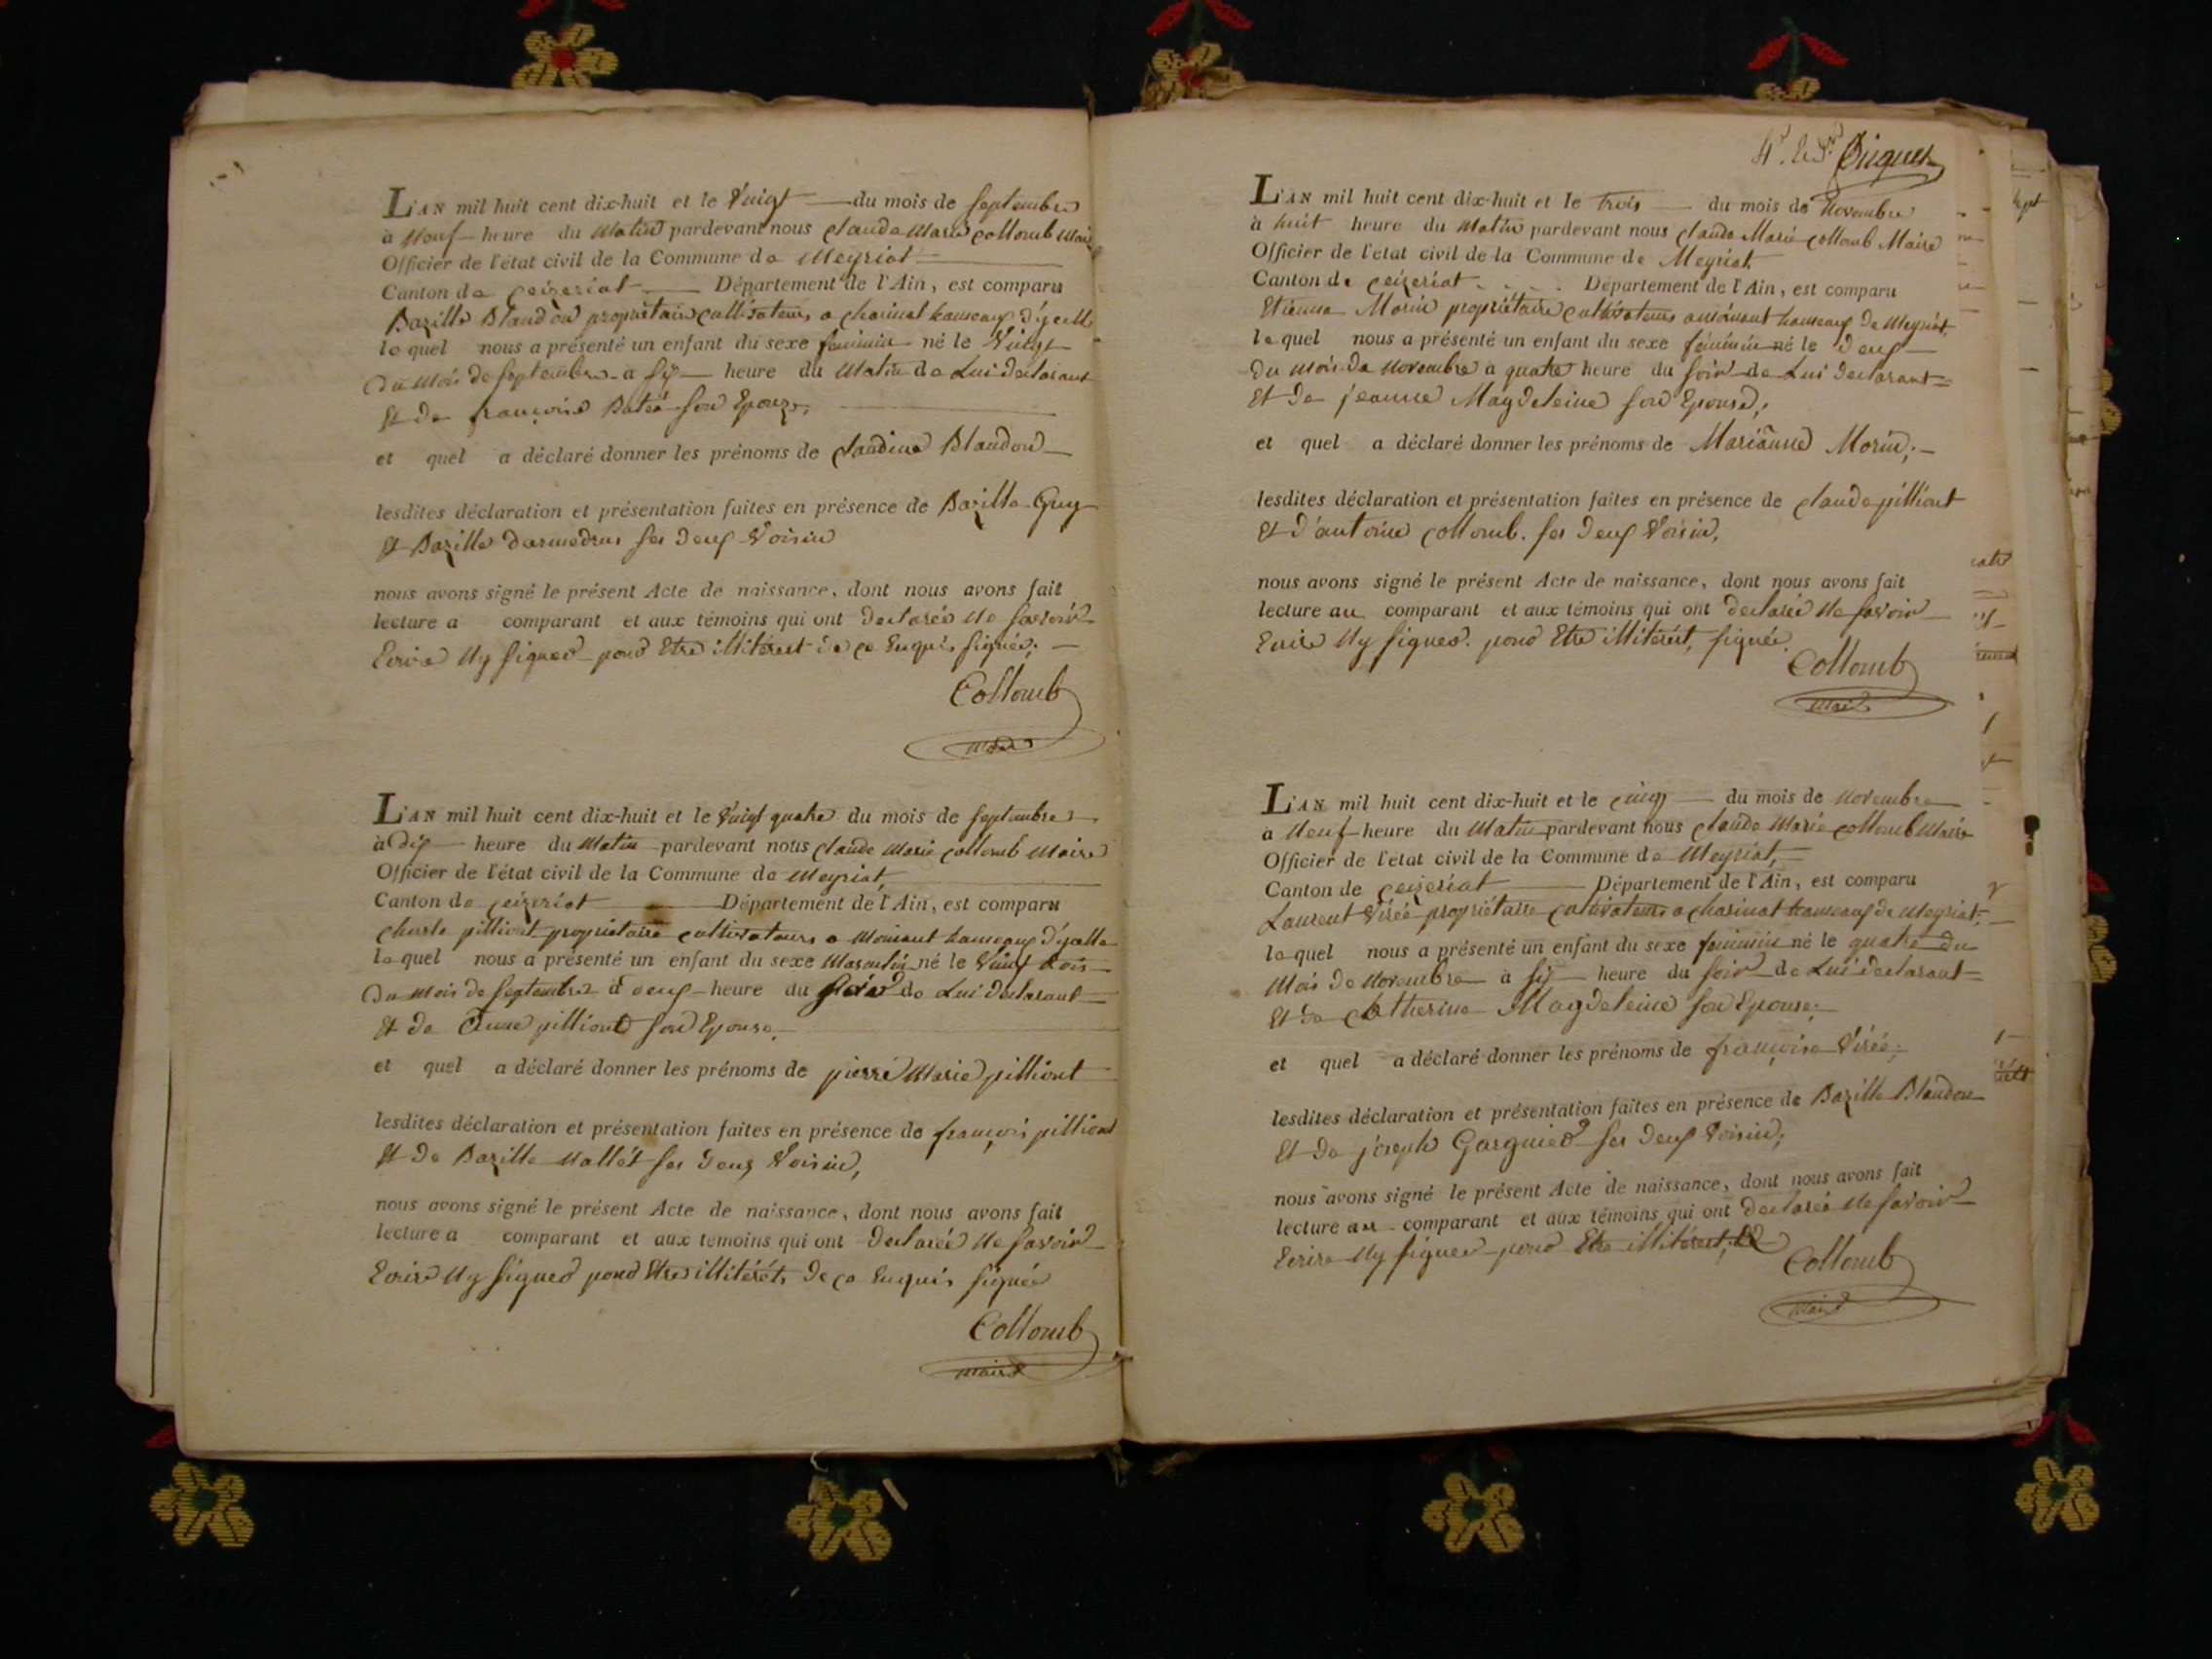 L'AN mil huit cent dix-huit et le Vingt du mois de septembre
à Neuf heure du Matin pardevant nous Claude Marie Collomb Maire
Officier de l'état civil de la Commune de Meyriat
Canton de Ceizeriat Département de l'Ain, est comparu
Bazille Blandon propriétaire cultivateur a charinat hameaux d'ycelle
le quel nous a présenté un enfant du sexe feminin né le Vingt
Du Mois de septembre a six heure du Matin de Lui declarant
Et de françoise son Epouze,
et quel a déclaré donner les prénoms de claudine Blandon
lesdites déclaration et présentation faites en présence de Bazille Guy
Et Bazille ses deux Voisin
nous avons signé le présent Acte de naissance, dont nous avons fait
lecture a comparant et aux témoins qui ont declarés Ne savoir
Ecrire Ny signer pour Etre illitérest de ce Enquis signée,
Collomb
maire
L'AN mil huit cent dix-huit et le Vingt quatre du mois de septembre
à dix heure du Matin pardevant nous Claude Marie Collomb Maire
Officier de l'état civil de la Commune de Meyriat,
Canton de ceizeriat Département de l'Ain, est comparu
charle pilliont propriétaire cultivateurs a Moinant hameaux d'ycelle
le quel nous a présenté un enfant du sexe Masculin né le Vingt trois
Du Mois de septembre à deux heure du soir de Lui declarant
Et de Anne pilliont son Epouse,
et quel a déclaré donner les prénoms de pierre Marie pilliont
lesdites déclaration et présentation faites en présence de françois pilliont
Et de Bazille Mallet ses deux Voisin,
nous avons signé le présent Acte de naissance, dont nous avons fait
lecture a comparant et aux témoins qui ont declarée Ne savoir
Ecrire Ny signer pour Etre illitérét, de ce Enquis signée
Collomb
maire
L'AN mil huit cent dix-huit et le trois du mois de Novembre
à huit heure du Matin pardevant nous Claude Marie Collomb Maire
Officier de l'état civil de la Commune de Meyriat
Canton de ceizeriat Département de l'Ain, est comparu
Etienne Morin propriétaire cultivateurs hameaux de Meyriat
le quel nous a présenté un enfant du sexe féminin né le deux
Du Mois de Novembre à quatre heure du soir de Lui declarant
Et de jeanne Magdeleine son Epouse,
et quel a déclaré donner les prénoms de Marianne Morin,
lesdites déclaration et présentation faites en présence de claude pilliont
Et d'antoine Collomb. ses deux Voisin,
nous avons signé le présent Acte de naissance, dont nous avons fait
lecture au comparant et aux témoins qui ont declarée Ne savoir
Ecrire Ny signer. pour Etre illitérét, signée,
Collomb
maire
L'AN mil huit cent dix-huit et le cinq du mois de Novembre
à Neuf heure du Matin pardevant nous Claude Marie Collomb Maire
Officier de l'état civil de la Commune de Meyriat,
Canton de ceizeriat Département de l'Ain, est comparu
Laurent Virée propriétaire cultivateurs a charinat hameaux de Meyriat
le quel nous a présenté un enfant du sexe feminin né le quatre du
Mois de Novembre à six heure du soir de Lui declarant
Et de Catherine Magdeleine son Epouse,
et quel a déclaré donner les prénoms de françoise Virée,
lesdites déclaration et présentation faites en présence de Bazille Blandon
Et de joseph Garguier ses deux Voisin,
nous avons signé le présent Acte de naissance, dont nous avons fait
lecture au comparant et aux témoins qui ont declarés Ne savoir
Ecrire Ny signer pour Etre illitérest,
Collomb
maire